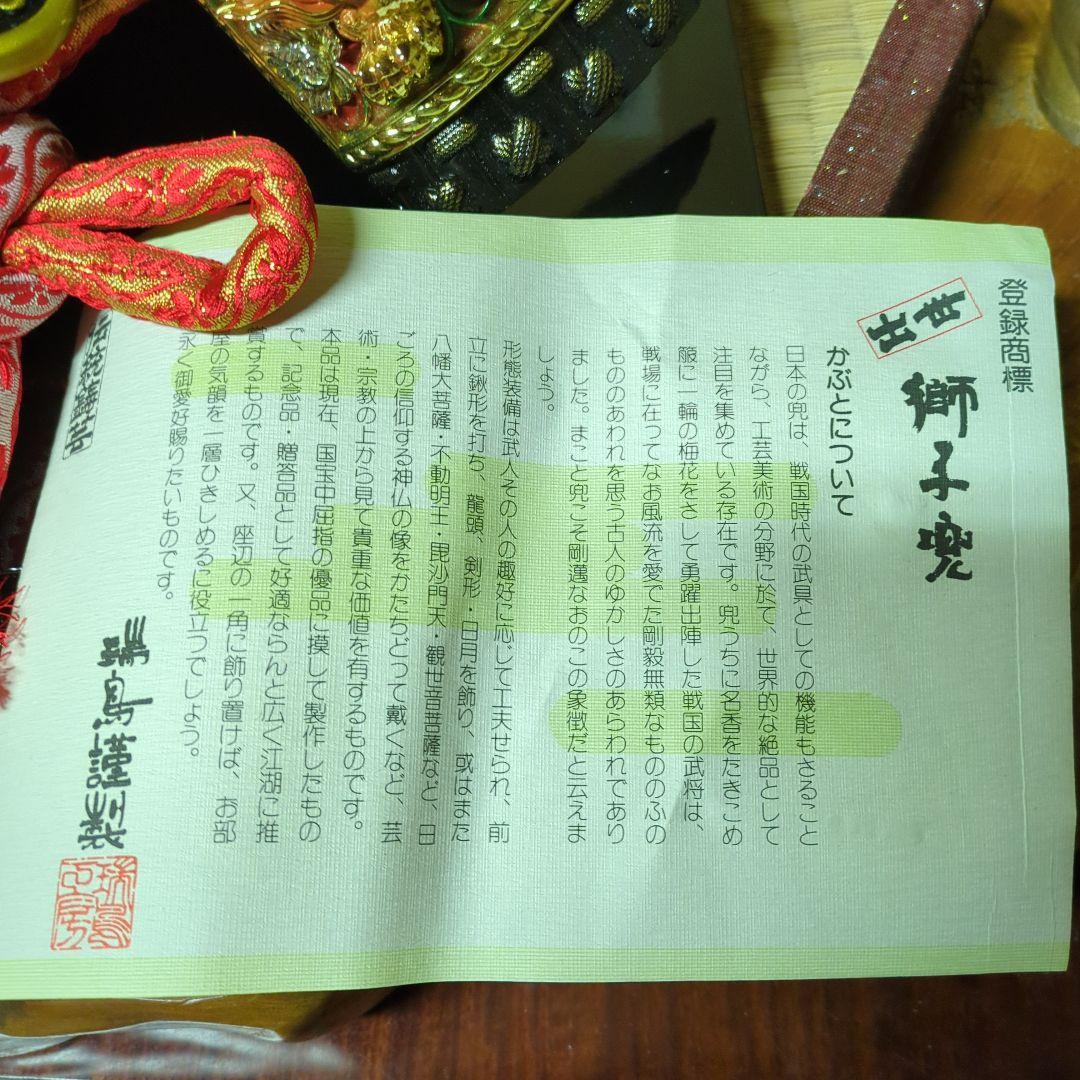 登録商標
出世
獅子兜
かぶとについて
日本の兜は、戦国時代の武具としての機能もさること
ながら、工芸美術の分野に於て、世界的な絶品として
注目を集めている存在です。兜うちに名香をたきこめ
箙に一輪の梅花をさして勇躍出陣した戦国の武将は、
戦場に在ってなお風流を愛でた剛毅無類なもののふの
もののあわれを思う古人のゆかしさのあらわれであり
ました。まこと兜こそ剛邁なおのこの象徴だと云えま
しょう。
形態装備は武人その人の趣好に応じて工夫せられ、前
立に鍬形を打ち、龍頭、剣形・日月を飾り、或はまた
八幡大菩薩・不動明王・毘沙門天・観世音菩薩など、日
ごろの信仰する神仏の像をかたちどって戴くなど、芸
術・宗教の上から見て貴重な価値を有するものです。
本品は現在、国宝中屈指の優品に摸して製作したもの
で、記念品・贈答品として好適ならんと広く江湖に推
賞するものです。又、座辺の一角に飾り置けば、お部
屋の気韻を一層ひきしめるに役立つでしょう。
永く御愛好賜りたいものです。
謹製